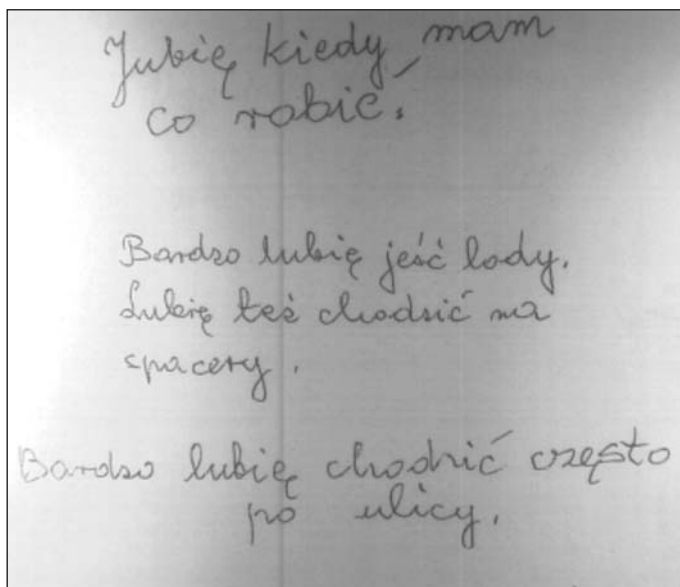 Lubię kiedy mam
co robić.
Bardzo lubię jeść lody.
Lubię też chodzić na
spacery.
Bardzo lubię chodzić często
po ulicy.